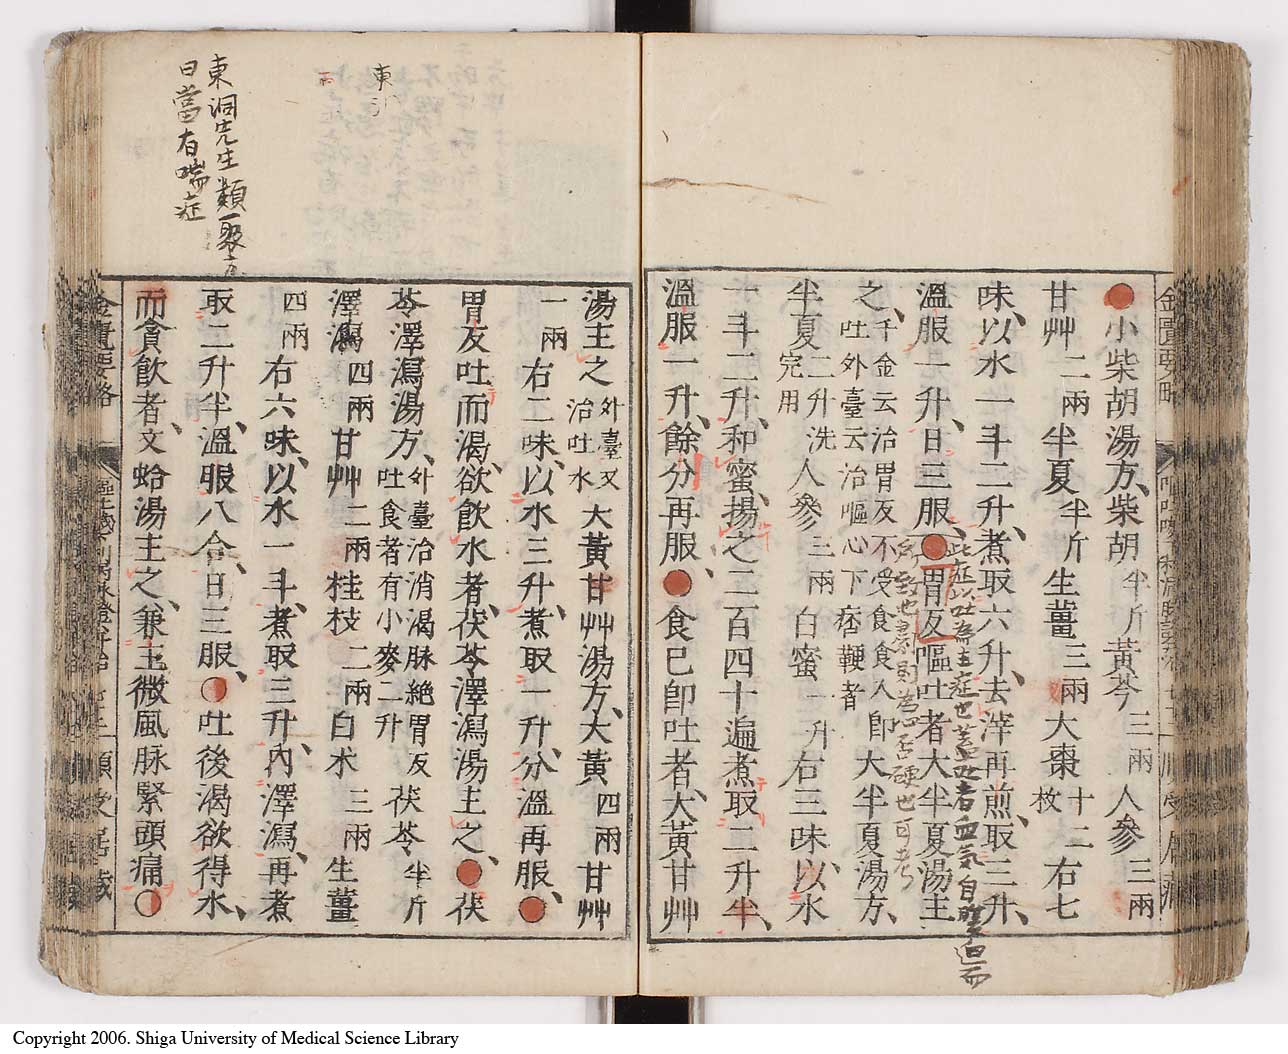 小柴胡湯方、柴胡半斤黃芩三兩人參三兩
甘艸二兩半夏半斤生薑三兩大棗十二枚右七
味、以水一斗二升、煮取六升、去滓再煎、取三升、
溫服一升、日三服、胃反嘔吐者大半夏湯主
之、千金云治胃反不受食食入即吐外臺云治嘔心下痞鞕者大半夏湯方、
半夏二升洗完用人參三兩白蜜一升右三味、以水
一斗二升、和蜜、揚之二百四十遍煮取二升半、
溫服一升、餘分再服、食已即吐者、大黃甘艸
湯主之外臺又治吐水大黃甘艸湯方、大黃四兩甘艸
一兩右二味、以水三升、煮取一升、分溫再服、
胃反吐而渴、欲飲水者、茯苓澤瀉湯主之、茯
苓澤瀉湯方、外臺治消渴脉絕胃反吐食者有小麥一升茯苓半斤
澤瀉四兩甘艸二兩桂枝二兩白朮三兩生薑
四兩右六味、以水一斗、煮取三升、內澤瀉、再煮
取二升半、溫服八合、日三服、吐後渴欲得水、
而貪飲者、文蛤湯主之、兼主微風脉緊頭痛
金匱要略
東洞先生類聚方
曰當有喘症
東
此症以吐為主症也
金匱要略
Copyright 2006. Shiga University of Medical Science Library